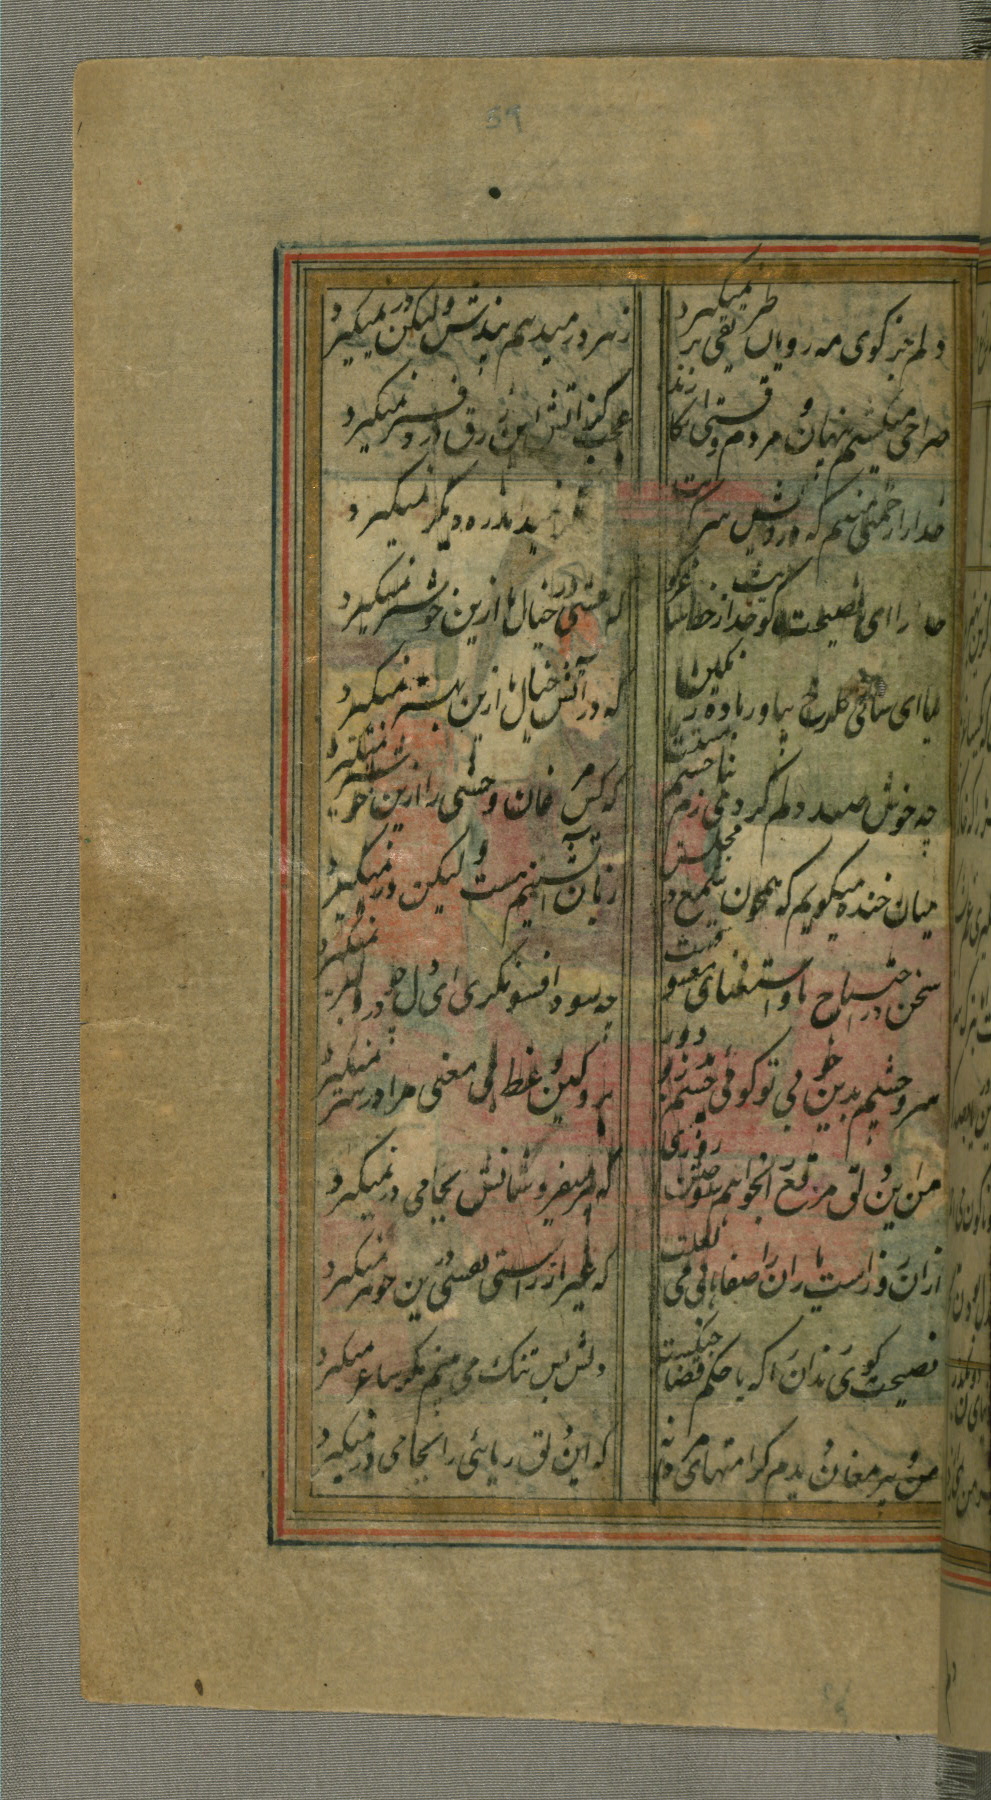 دلم جز کوی مه رویان طریقی بر نمیگیرد
زهر در میدهم پندش ولیکن در نمیگیرد
صراحی میکشم پنهان و مردم دفتر انگارند
عجب گر آتش این زرق در دفتر نمیگیرد
خدارا رحمتی منعم که درویش سر کویت
دری دیگر نمیداند ره دیگر نمیگیرد
خدا را ای نصیحت گو حدیث از خط ساقی گو
که نقشی در خیال ما ازین خوشتر نمیگیرد
بیا ای ساقی گلرخ بیاور باده رنگین
که در آتش خیال ما ازین بهتر نمیگیرد
چه خوش صید دلم کردی بنازم چشم مستت را
که کس مرغان وحشی را ازین خوشتر نمیگیرد
میان خنده میگویم که همچون شمع در مجلس
زبان آتشینم هست ولیکن در نمیگیرد
سخن در احتیاج ما و استغنای معشوقست
چه سود افسونگری ای دل چو در دلبر نمیگیرد
سر و چشم بدین خوبی تو گوئی چشم ازو بردوز
برو کین وعظ بی معنی مرا در سر نمیگیرد
من این دلق مرقع را بخواهم سوختن روزی
که پیر میفروشانش بجامی در نمیگیرد
ازان رو راست یاران را صفاها بامی لعلست
که غیر از راستی نقشی درین جوهر نمیگیرد
نصیحت گوی رندان را که با حکم قضا جنگست
دلش بس تنگ می بینم مگر ساغر نمیگیرد
من از پیر مغان دیدم کرامتهای مردانه
که این دلق ریائی را بجامی در نمیگیرد